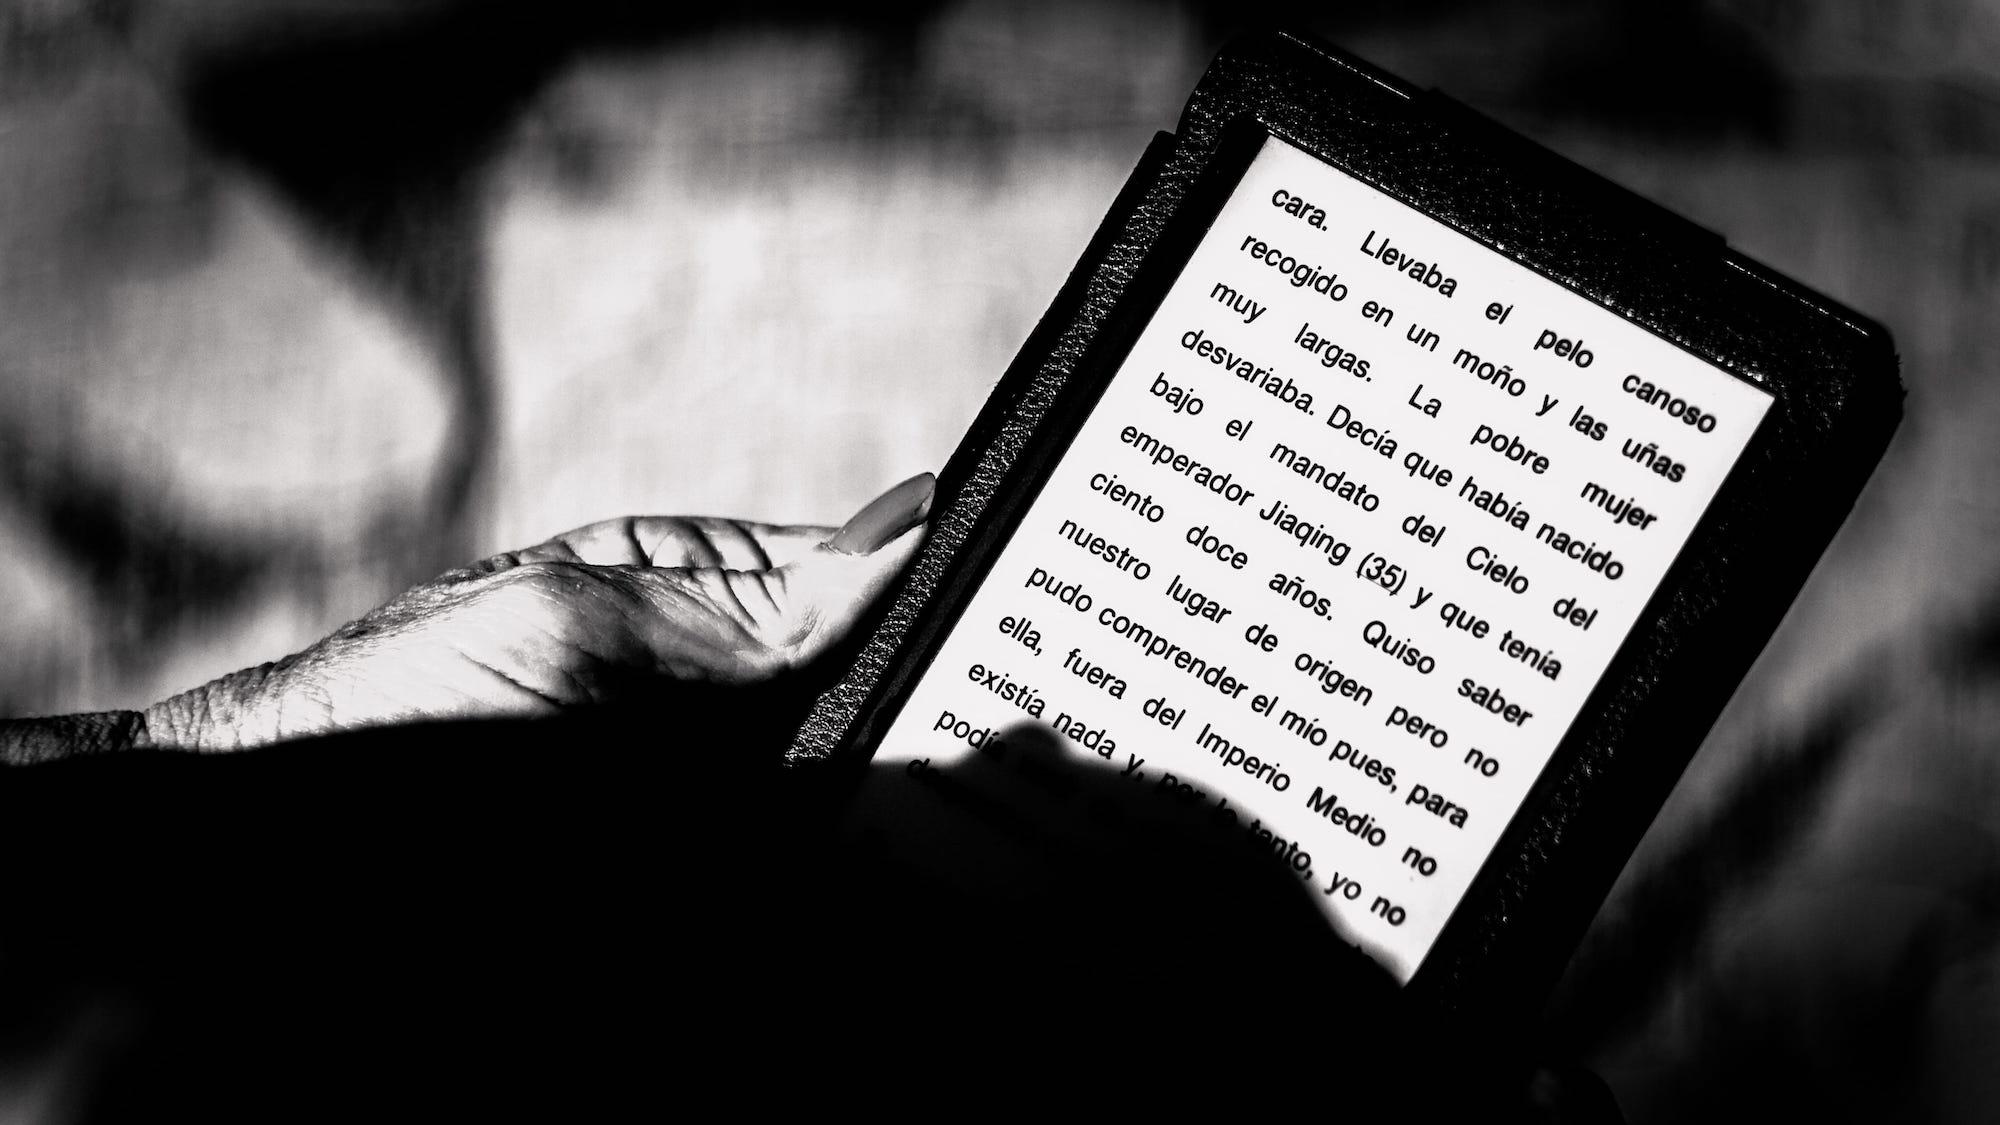 cara. Llevaba el pelo canoso
recogido en un moño y las uñas
muy largas. La pobre mujer
desvariaba. Decía que había nacido
bajo el mandato del Cielo del
emperador Jiaqing (35) y que tenía
ciento doce años. Quiso saber
nuestro lugar de origen pero no
pudo comprender el mío pues, para
ella, fuera del Imperio Medio no
existía nada y, por lo tanto, yo no
podía